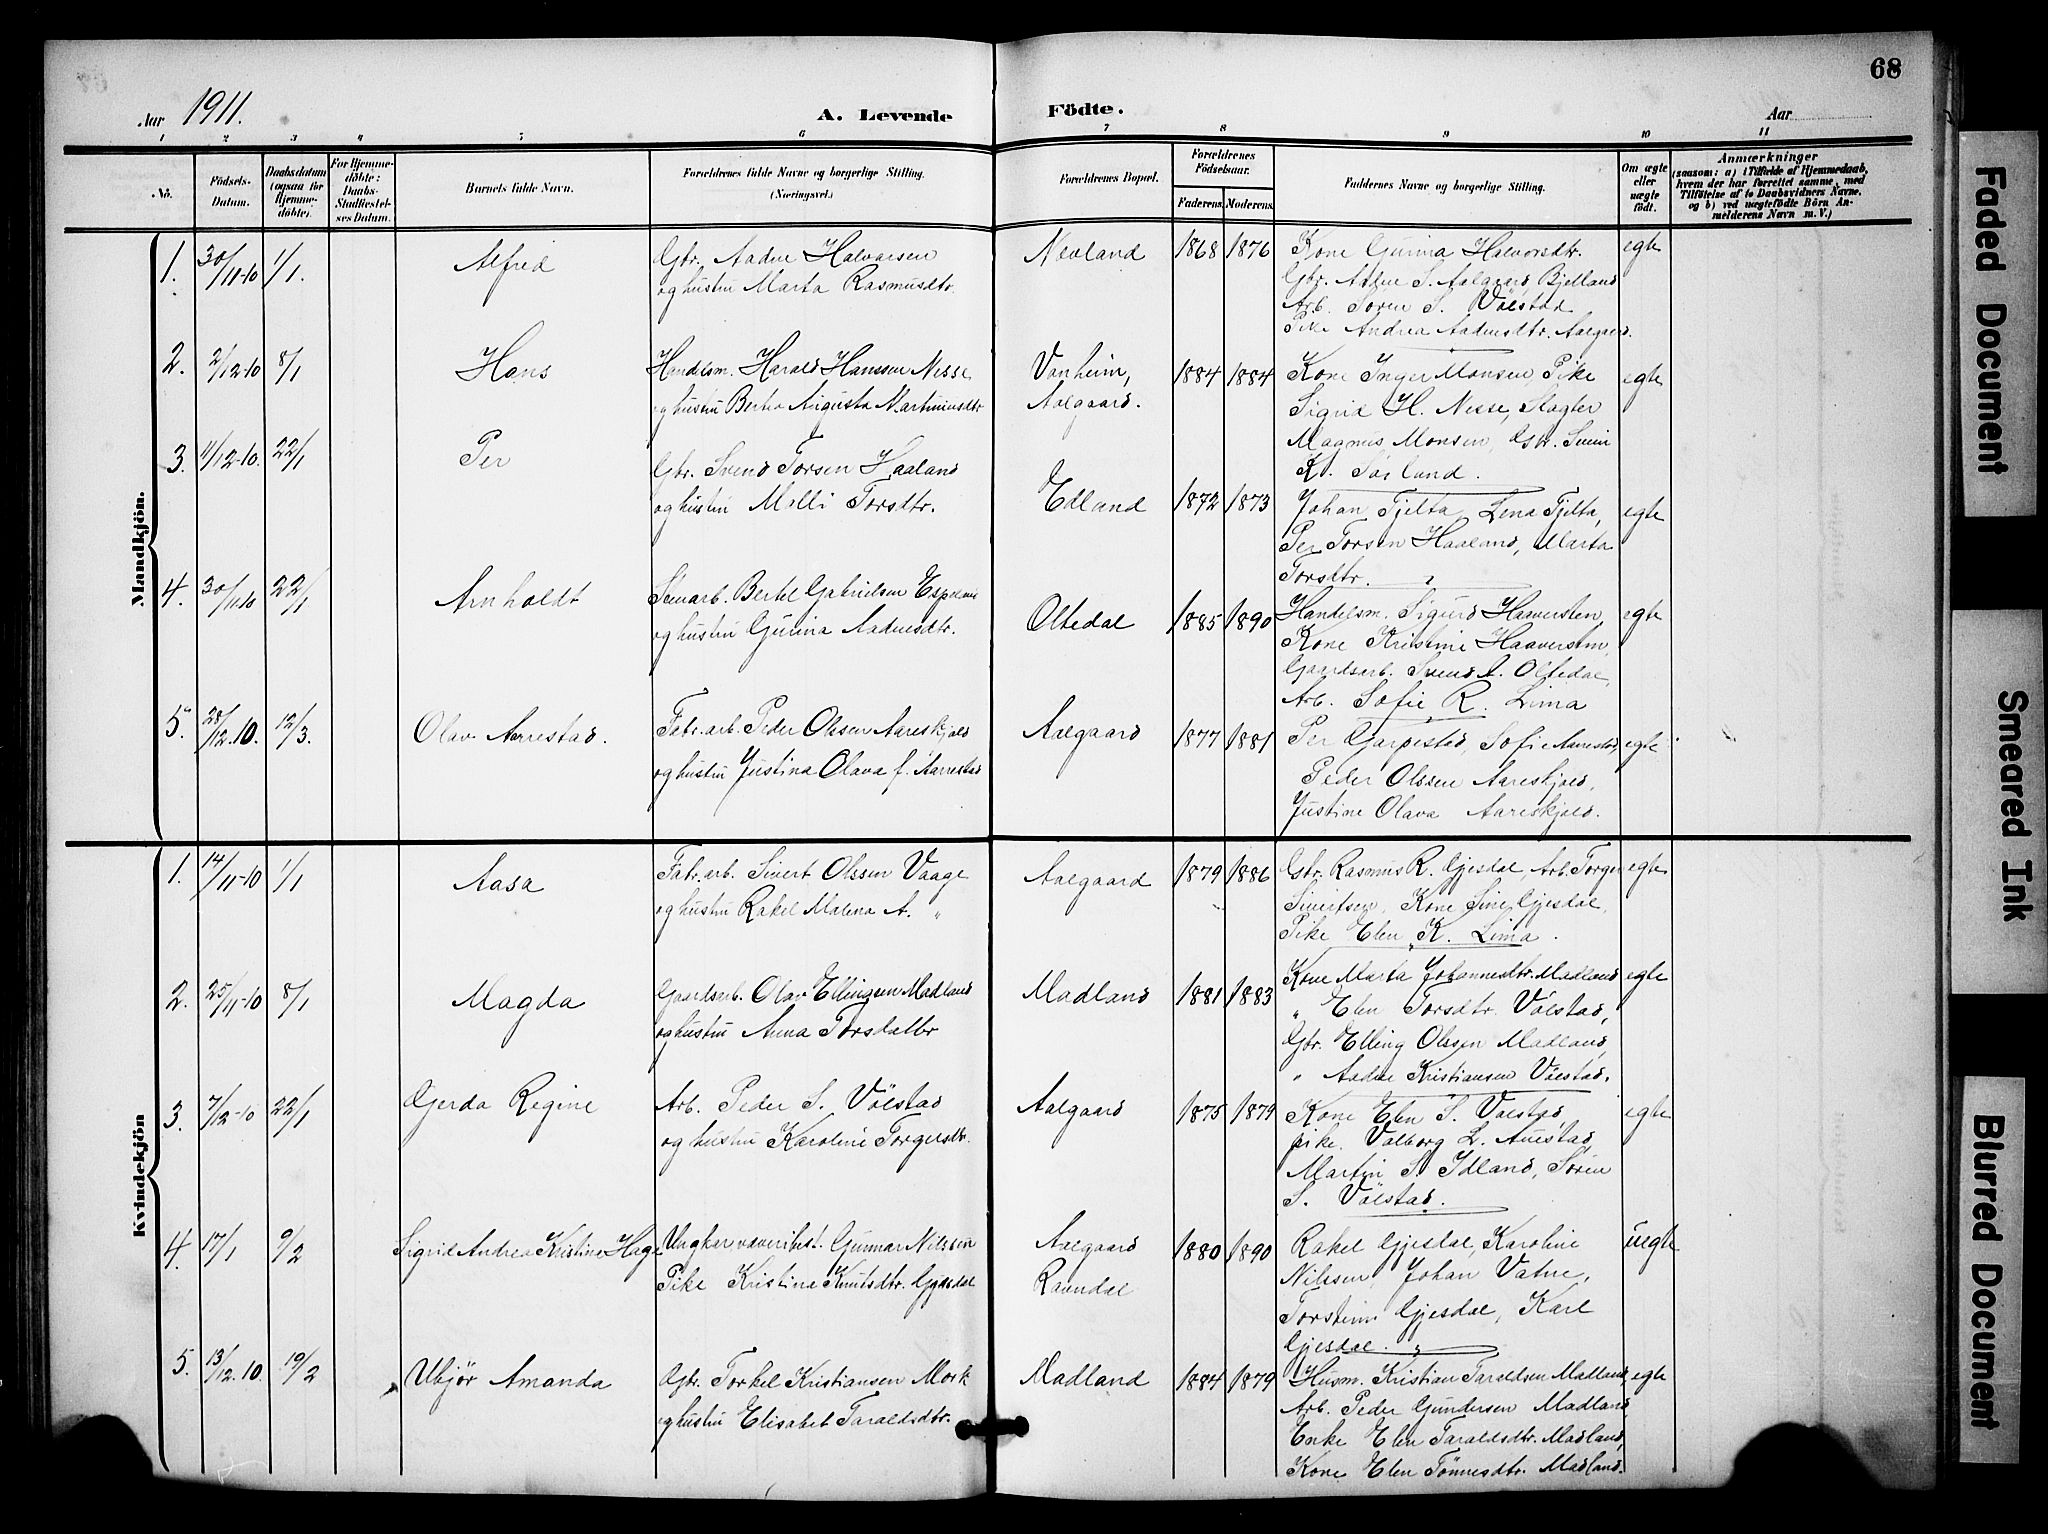 68
Aar 1911.
A. Levende Födte.
Aar
1 2 3 4 5 6 7 8 9 10 11
No.
Födsels-Datum.
Daabsdatum (ogsaa for Hjemmedöbte).
For Hjemmedöbte: Daabs-Stadfæstelses Datum.
Barnets fulde Navn.
Forældrenes fulde Navne og borgerlige Stilling. (Næringsvei.)
Forældrenes Bopæl.
Forældrenes Födselsaar.
Faderens. Moderens.
Faddernes Navne og borgerlige Stilling.
Om ægte eller uægte födt.
Anmærkninger (saasom: a) i Tilfælde af Hjemmedaab, hvem der har forrettet samme, med Tilföielse af to Daabsvidners Navne, og b) ved uægtefödte Börn Anmelderens Navn m. V.)
Mandkjön.
1. 30/11-10 1/1. Alfred
Gbr. Aadne Halvorsen
og hustru Marta Rasmusdtr.
Nevland 1868 1876
Kone Gunna Halvorsdtr.
Gbr. Adne S. Aalgaard, Bjelland
Arb. Soren S. Völstad
Pike Andrea Aadnesdtr. Aalgaard.
egte
2. 2/12-10 8/1 Hans
Handelsm. Harald Hanssen Nesse
og hustru Berta Augusta Martiniusdtr
Vanheim,
Aalgaard.
1884 1884
Kone Inger Monsen, Pike
Sigrid H. Nesse, Slagter
Magnus Monsen, Gbr. Svein
K. Sørland.
egte
3. 11/12-10. 22/1 Per
Gbr. Svend Torsen Haaland
og hustru Malli Torsdtr.
Edland 1872 1873
Johan Tjelta, Lena Tjelta,
Per Torsen Haaland, Marta
Torsdtr.
egte
4. 30/11-10 22/1 Arnholdt
Stenarb. Bertel Gabrielsen
og hustru Gurina Aadnesdtr.
Oltedal 1885 1890
Handelsm. Sigurd Haaversten,
Kone Kristine Haaversten,
Gaardsarb. Svend A. Oltedal,
Arb. Sofie R. Lima
egte
5. 28/12.10. 12/3. Olav Aarrestad.
Fabr. arb. Peder Olssen Aareskjold
og hustru Justina Olava f. Aarrestad
Aalgaard 1877 1881
Per Garpestad, Sofie Aarrestad,
Peder Olssen Aareskjold,
Justine Olava Aareskjold.
egte
Kvindekjön
1. 14/11-10 1/1 Aasa
Fabr. arb. Sivert Olssen Vaage
og hustru Rakel Malena A. "
Aalgaard 1879 1886
Gbr. Rasmus R. Gjesdal, Arb. Torger
Sivertsen, Kone Sine Gjesdal,
Pike Elen K. Lima.
egte
2. 25/11-10 8/1 Magda
Gaardsarb. Olav Ellingsen Madland
og hustru Anna Torsdattr
Madland 1881 1883
Kone Marta Johannesdtr. Madland
" Elen Torsdtr. Völstad,
Gbr. Elling Olssen Madland,
" Aadne Kristiansen Völstad.
egte
3. 7/12-10 22/1 Gerda Regine
Arb. Peder S. Völstad
og hustru Karoline Torgersdtr.
Aalgaard 1875 1879
Kone Elen S. Völstad
pike Valborg L. Auestad,
Martin S. Idland, Sören
S. Völstad.
egte
4. 17/1 9/2 Sigrid Andrea Kristine Hage
Ungkar Gunnar Nilssen
Pike Kristina Knutsdtr. Gjesdal
Aalgaard
Ravndal
1880 1890
Rakel Gjesdal, Karoline
Nilssen, Johan Vatne,
Torstein Gjesdal, Karl
Gjesdal.
uegte
5. 13/12.10 19/2 Ubjör Amanda
Gbr. Torkel Kristiansen Mork
og hustru Elisabet Taraldsdtr.
Madland 1884 1879
Husm. Kristian Taraldsen Madland,
Arb. Peder Gundersen Madland,
Enke Elen Taraldsdtr. Madland,
Kone Elen Tönnesdtr. Madland.
egte
Faded Document
Smeared Ink
Blurred Document